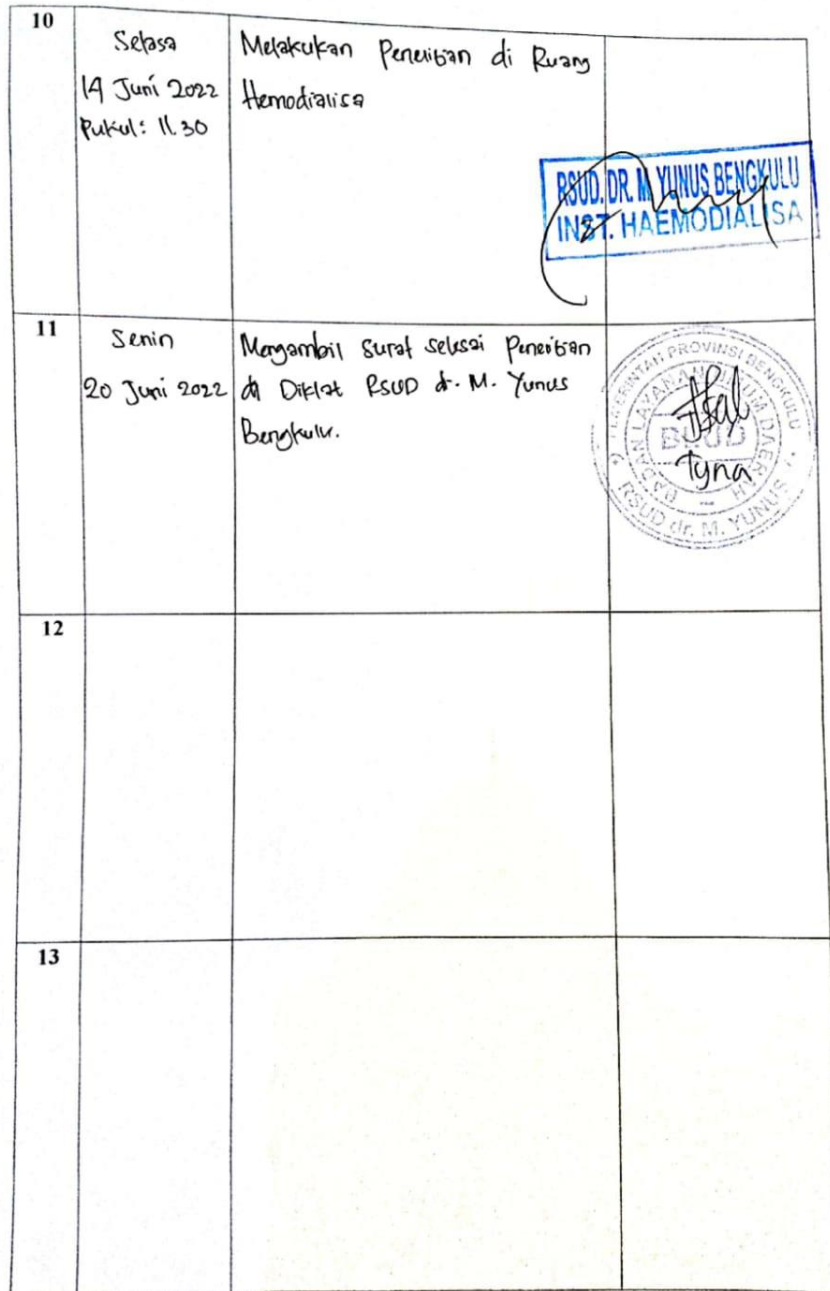 10
Selasa
14 Juni 2022
Pukul: 11.30
Melakukan Penelitian di Ruang
Hemodialisa
RSUD. DR. M. YUNUS BENGKULU
INST. HAEMODIALISA
11
Senin
20 Juni 2022
Mengambil Surat selesai Penelitian
di Diklat RSUD dr. M. Yunus
Bengkulu.
PEMERINTAH PROVINSI BENGKULU
BADAN LAYANAN UMUM DAERAH
BLUD
Tyna
RSUD dr. M. YUNUS
12
13